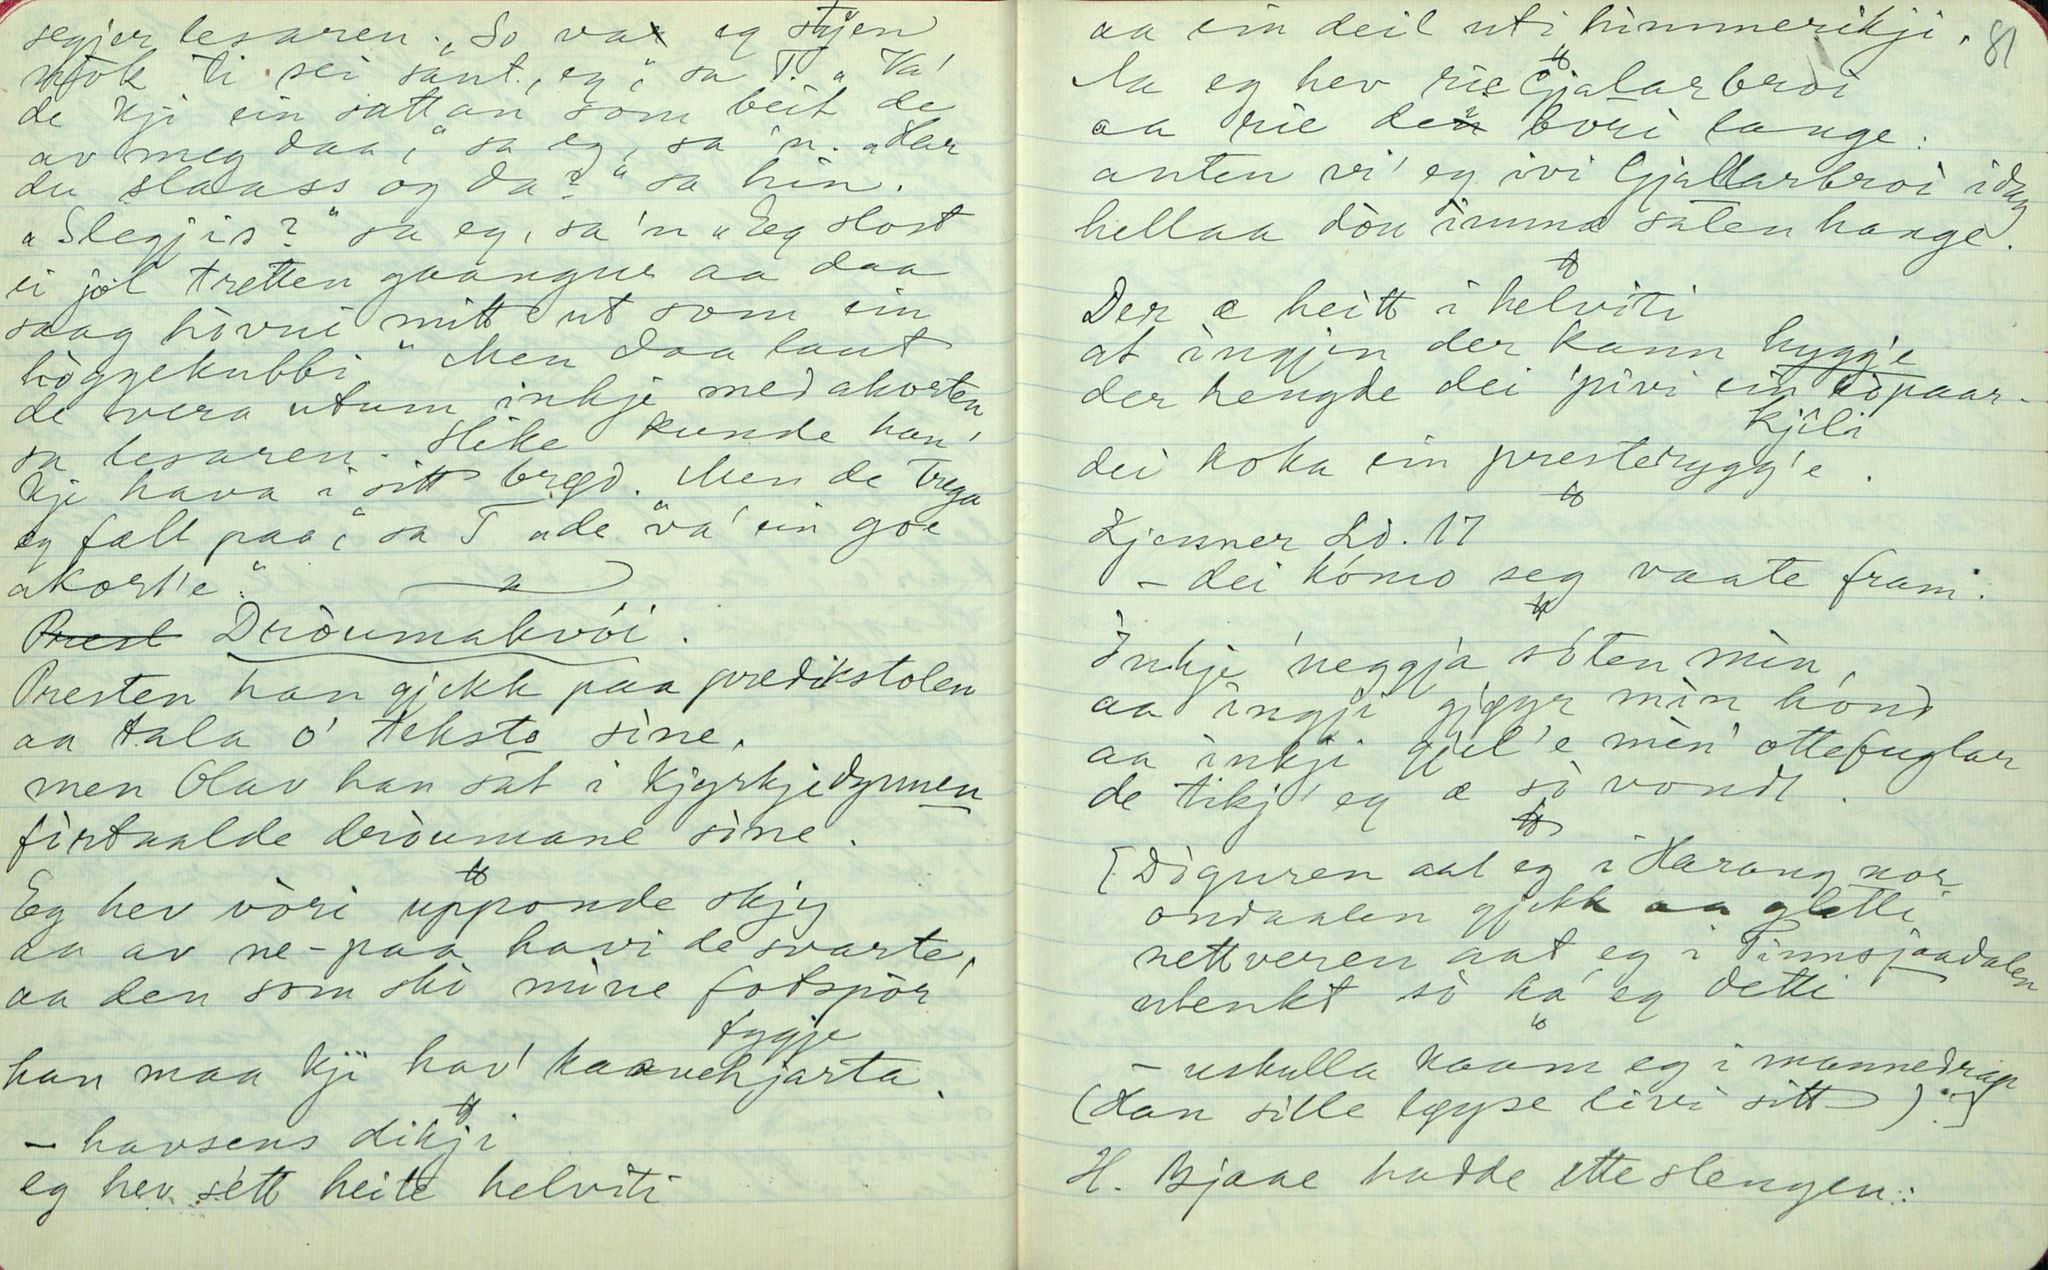 segjer lesaren. „So var eg styen
mfok ti sei sant, eg," sa T. „Va'
de kji ein sattan som beit de
av meg daa," sa eg, sa 'n. „Har
du slaass og da?" sa hin.
„Slegjis?" sa eg, sa 'n „Eg slost
ei jol tretten gaangur aa daa
saag hovui mitt ut som ein
hòggekubbi" Men daa laut
de vera utum inkje med akorten
sa lesaren. Slike kunde han'
kji hava i sitt brød. Men de trega
eg fælt paa," sa T „de va' ein goe
akort'e."
Prest Dròumakvòi.
Presten han gjekk paa predikstolen
aa tala o' teksto sine,
men Olav han sat i kjyrkjedynnen
firtaalde dròumane sine.
Eg hev vòri upponde skjy
aa av ne-paa havi de svarte,
aa den som ski mine fotspòr
fygje
han maa kji hav' kaavehjarta.
– havsens dikji
eg hev sétt heite helviti
81
aa ein deil uti himmerikji.
Na eg hev rie Gjalarbroi
aa rie den bòri lange:
anten vi' eg ivi Gjallarbroi idag
hellaa dòu imma sålen hange.
Der æ heitt i helviti
at ingjen der kann hygg'e
der hengde dei 'pivi ein kòpaar-
kjili
dei koka ein presterygg'e.
Kjessner Ld. 17
– dei kómo seg vaate fram.
Inkje 'neggja sòten min,
aa ingji gjøyr min hònd
aa inkji gjel'e mèn' ottefuglar
de tikj' eg æ sò vondt.
[Diguren aat eg i Harang nor
ondaalen gjekk aa gletti
nettveren aat eg i Tinnsjaadalen
utenkt sò ka' eg detti
– uskulla kaam eg i mannedrap
(Han sille løyse livi sitt).]
H. Bjaae hadde etteslengen: